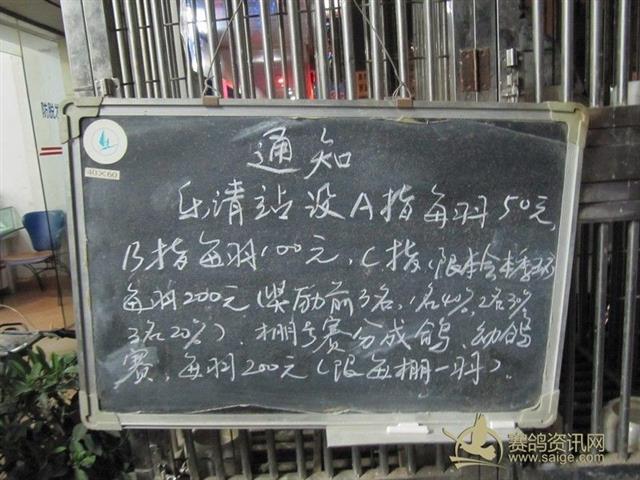 防脱
40×60
通知
乐清站设A指每羽50元,
B指每羽100元,C指(限本会本季环)
每羽200元(奖励前3名,1名40%,2名30%
3名20%)。棚号赛分成鸽、幼鸽
赛,每羽200元(限每棚一羽)。
赛鸽资讯网
www.saige.com